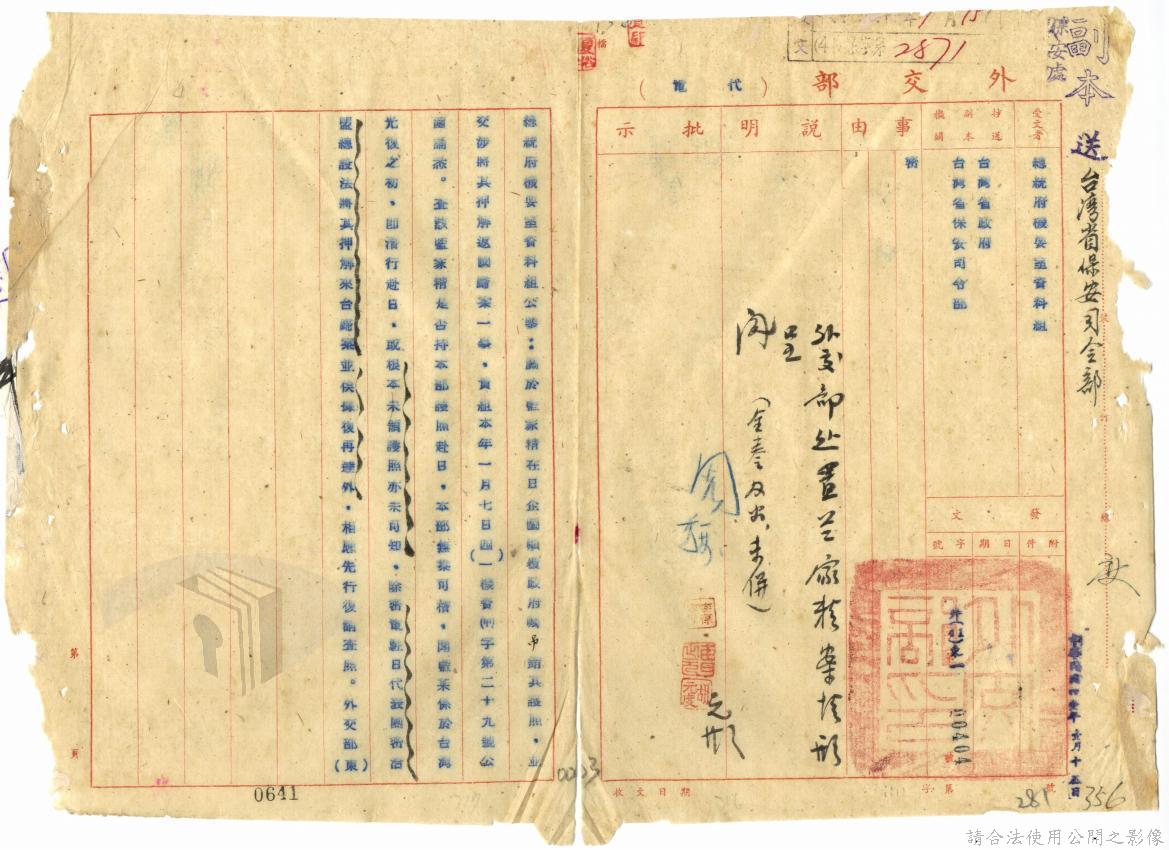 副本
保安處
送台灣省保安司令部
2871
外交部(代電)
受文者
總統府機要室資料組
抄送副本機關
台灣省政府
台灣省保安司令部
事由
密
說明
批示
發文
附件
日期
字號
中華民國四十年壹月十五日
外(40)東一
00404
號
外交部處置藍家精案情形
呈
閱
總統府機要室資料組公鑒:關於藍家精在日企圖顛覆政府峻吊銷其護照,並
交涉將其押解返國歸案一舉,貴組本年一月七日(四一)機資(利)字第二十九號公
函誦悉。查該藍家精是否持本部護照赴日,本部無案可稽,因藍某係於台灣
光復之初,即潛行赴日,或根本未領護照亦未可知,除密電駐日代表團密洽
盟總設法將其押解來台歸案並俟得復再達外,相應先行復請查照。外交部(東
第 頁
0641
0033
收文日期
字第 號
281
356
請合法使用公開之影像